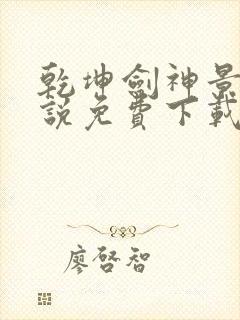 乾坤劍神景
說免費下載
廖啓智